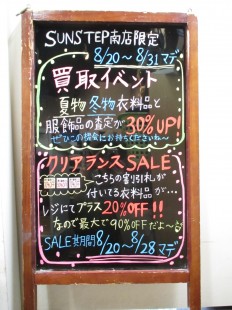 SUNSTEP南店限定
8/20～8/31マデ
買取イベント
夏物 冬物衣料品と
服飾品の査定が30%UP!
ぜひこの機会にお持ちくださいね～
クリアランスSALE
こちらの割引札が
付いてる衣料品が…
レジにてプラス20%OFF!!
なので最大で90%OFFだよ～
SALE期間8/20～8/28マデ